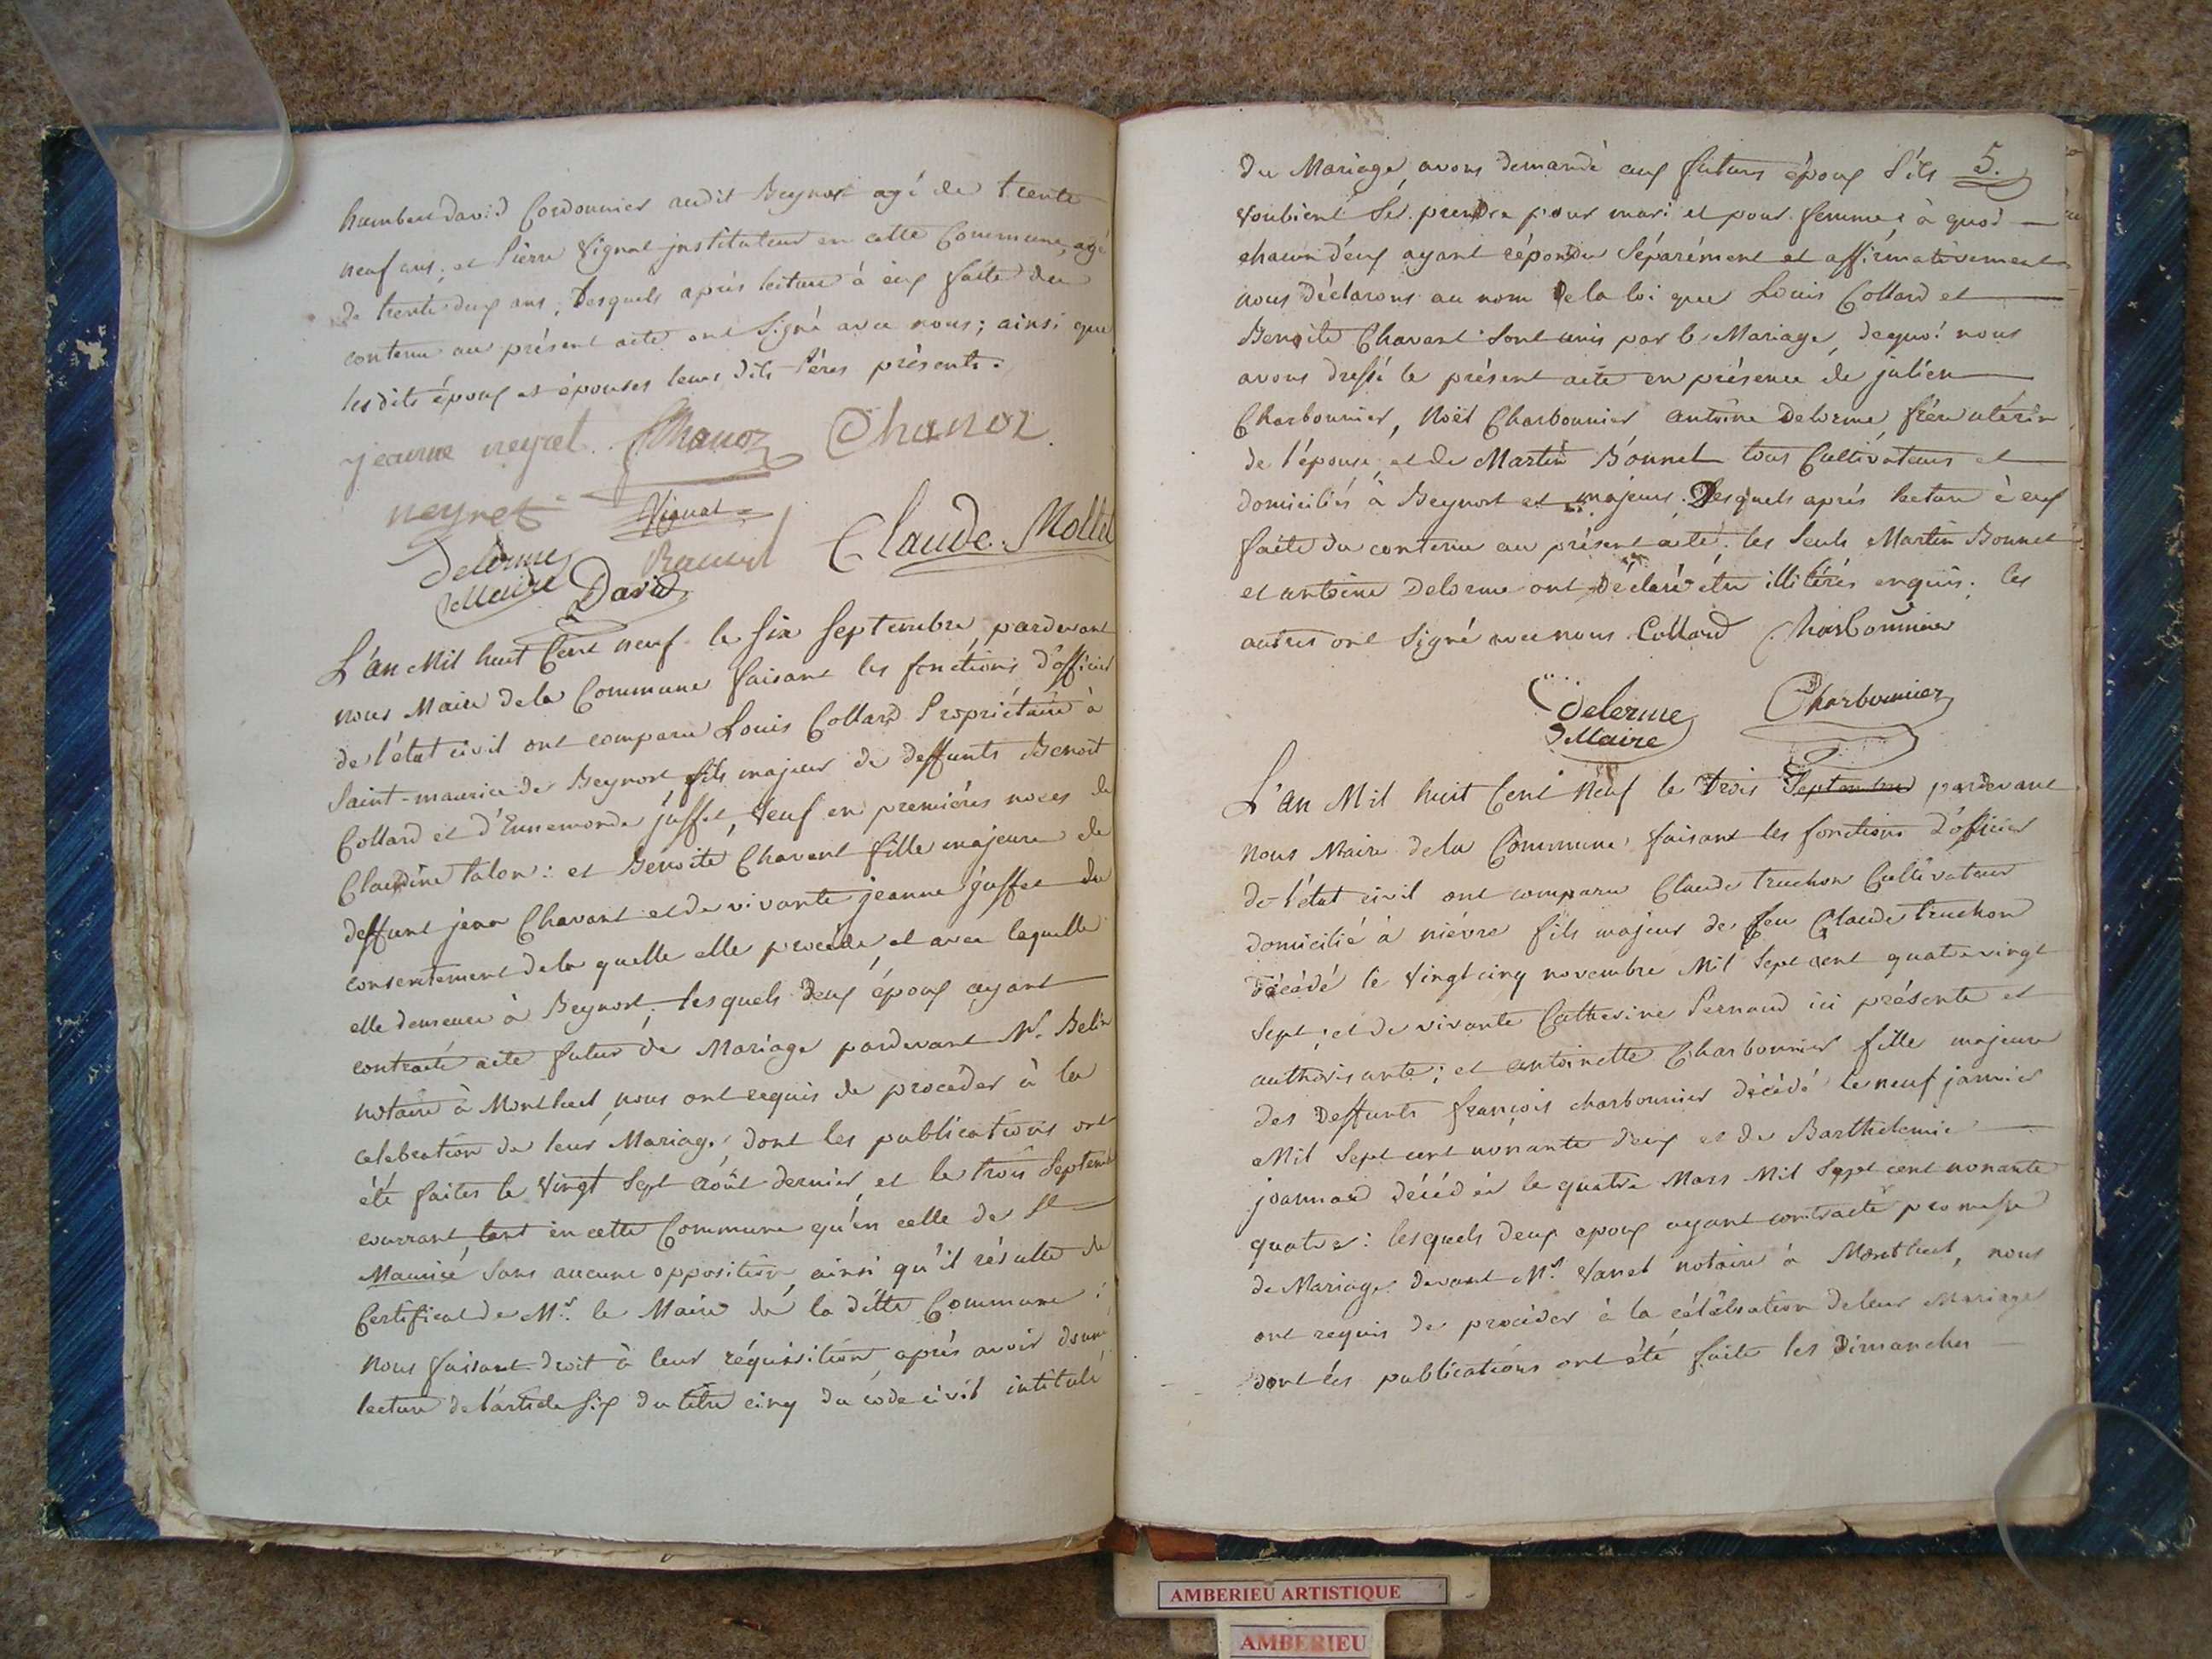 humbert David Cordonnier audit Beynost agé de trente
neuf ans, et Pierre Vignat jnstituteur en cette Commune, agé
de trente deux ans, Lesquels aprés lecture à eux faite du
contenu au présent acte ont Signé avec nous; ainsi que
les dits époux et épouses leurs dits Péres présents.
jeanne neyret Chanoz Chanoz
neyret Vignat
Claude Mollet
Delorme
Maire David
L'an Mil huit Cent neuf le six septembre, pardevant
nous Maire dela Commune faisant les fonctions d'officier
de l'état civil ont comparu Louis Collard Propriétaire à
Saint-maurice de Beynost fils majeur de deffunts Benoit
Collard et d'Ennemonde juffet, Veuf en premiéres noces de
Claudine talon: et Benoite Chavant fille majeure de
deffunt jean Chavant et de vivante jeanne juffet du
consentement dela quelle elle procéde, et avec laquelle
elle demeure à Beynost; lesquels deux époux ayant
contracté acte futur de Mariage pardevant Mr. Belin
notaire à Montluel, nous ont requis de procéder à la
celebration de leur Mariage, dont les publications ont
été faites le Vingt Sept août dernier et le trois Septembre
courrant, tant en cette Commune qu'en celle de St
Maurice Sans aucune opposition, ainsi qu'il résulte de
Certificat de Mr. le Maire de la ditte Commune:
Nous faisant droit à leur réquisition, aprés avoir donné
lecture de l'article six du titre cinq du code civil intitulé
5.
du Mariage, avons demandé aux futurs époux S'ils
Voulient Se prendre pour mari et pour femme; à quoi
chacun d'eux ayant répondu Séparément et affirmativement
nous déclarons au nom dela loi que Louis Collard et
Benoite Chavant Sont unis par le Mariage, dequoi nous
avons dressé le présent acte en présence de julien
Charbonnier, Noël Charbonnier antoine Delorme frére utérin
de l'épouse, et de Martin Bonnet tous Cultivateurs et
domiciliés à Beynost et majeurs. Lesquels aprés lecture à eux
faite du contenu au présent acte, les Seuls Martin Bonnet
et antoine Delorme ont Déclaré étre illitérés enquis; les
autres ont Signé avec nous Collard Charbonnier
Delorme Charbonnier
Maire
L'an Mil huit Cent Neuf le Trois Septembre pardevant
Nous Maire dela Commune, faisant les fonctions d'officier
de l'état civil ont comparu Claude truchon Cultivateur
domicilié à niévre fils majeur de feu Claude truchon
Décédé le Vingt cinq novembre Mil Sept cent quatrevingt
Sept; et de vivante Catherine Pernaud ici présente et
authorisante; et antoinette Charbonnier fille majeure
des Deffunts françois charbonnier décédé le neuf janvier
Mil Sept cent nonante deux et de Barthelemie
joannard décédée le quatre Mars Mil Sept cent nonante
quatre: lesquels deux epoux ayant contracté promesse
de Mariage devant Mr. Vanet notaire à Montluel, nous
ont requis de procéder à la célébration deleur Mariage
dont les publications ont été faite les Dimanches
AMBERIEU ARTISTIQUE
AMBERIEU